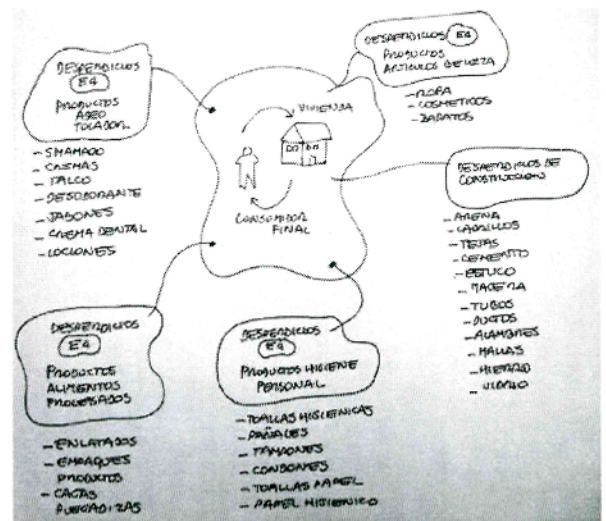 DESPERDICIOS
E4
PRODUCTOS
ASEO
TOCADOR
- SHAMPOO
- CREMAS
- TALCO
- DESODORANTE
- JABONES
- CREMA DENTAL
- LOCIONES
VIVIENDA
CONSUMIDOR
FINAL
DESPERDICIOS E4
PRODUCTOS
ARTICULOS BELLEZA
- ROPA
- COSMETICOS
- ZAPATOS
DESPERDICIOS DE
CONSTRUCCION
- ARENA
- LADRILLOS
- TEJAS
- CEMENTO
- ESTUCO
- MADERA
- TUBOS
- DUCTOS
- ALAMBRES
- MALLAS
- HIERRO
- VIDRIO
DESPERDICIOS
E4
PRODUCTOS
ALIMENTOS
PROCESADOS
- ENLATADOS
- EMPAQUES
PRODUCTOS
- CAJAS
DESPERDICIOS
E4
PRODUCTOS HIGIENE
PERSONAL
- TOALLAS HIGIENICAS
- PAÑALES
- TAMPONES
- CONDONES
- TOALLAS PAPEL
- PAPEL HIGIENICO